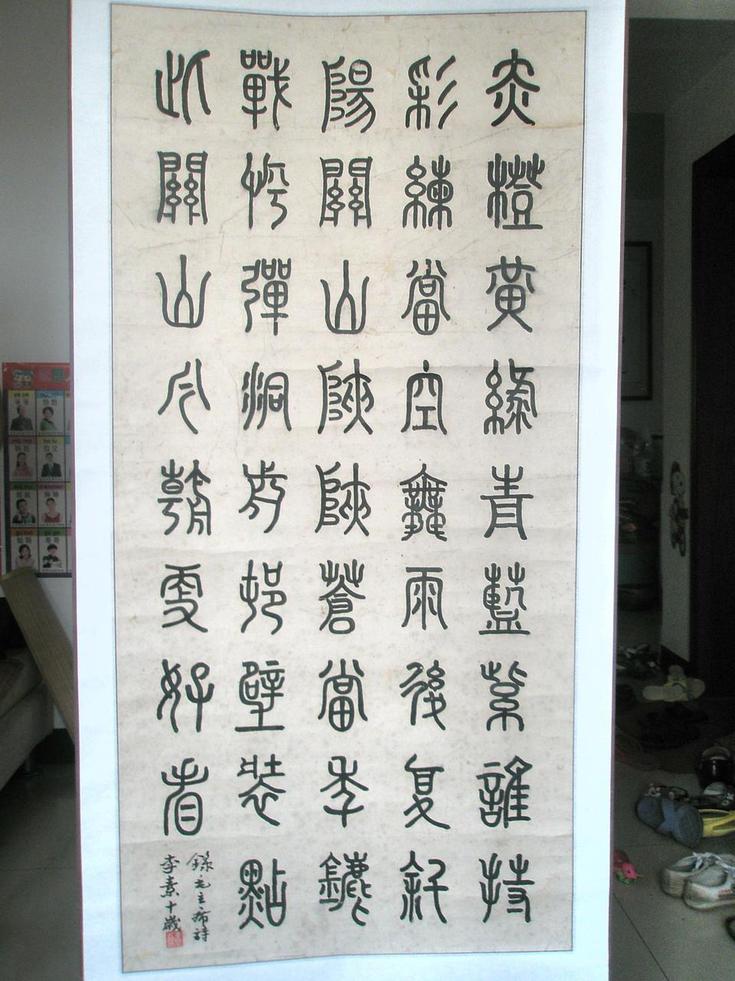 赤橙黃綠青藍紫誰持
彩練當空舞雨後复斜
陽關山陣陣蒼當年鏖
戰急彈洞前邨壁裝點
此關山今朝更好看
錄毛主席詩
李素十歲